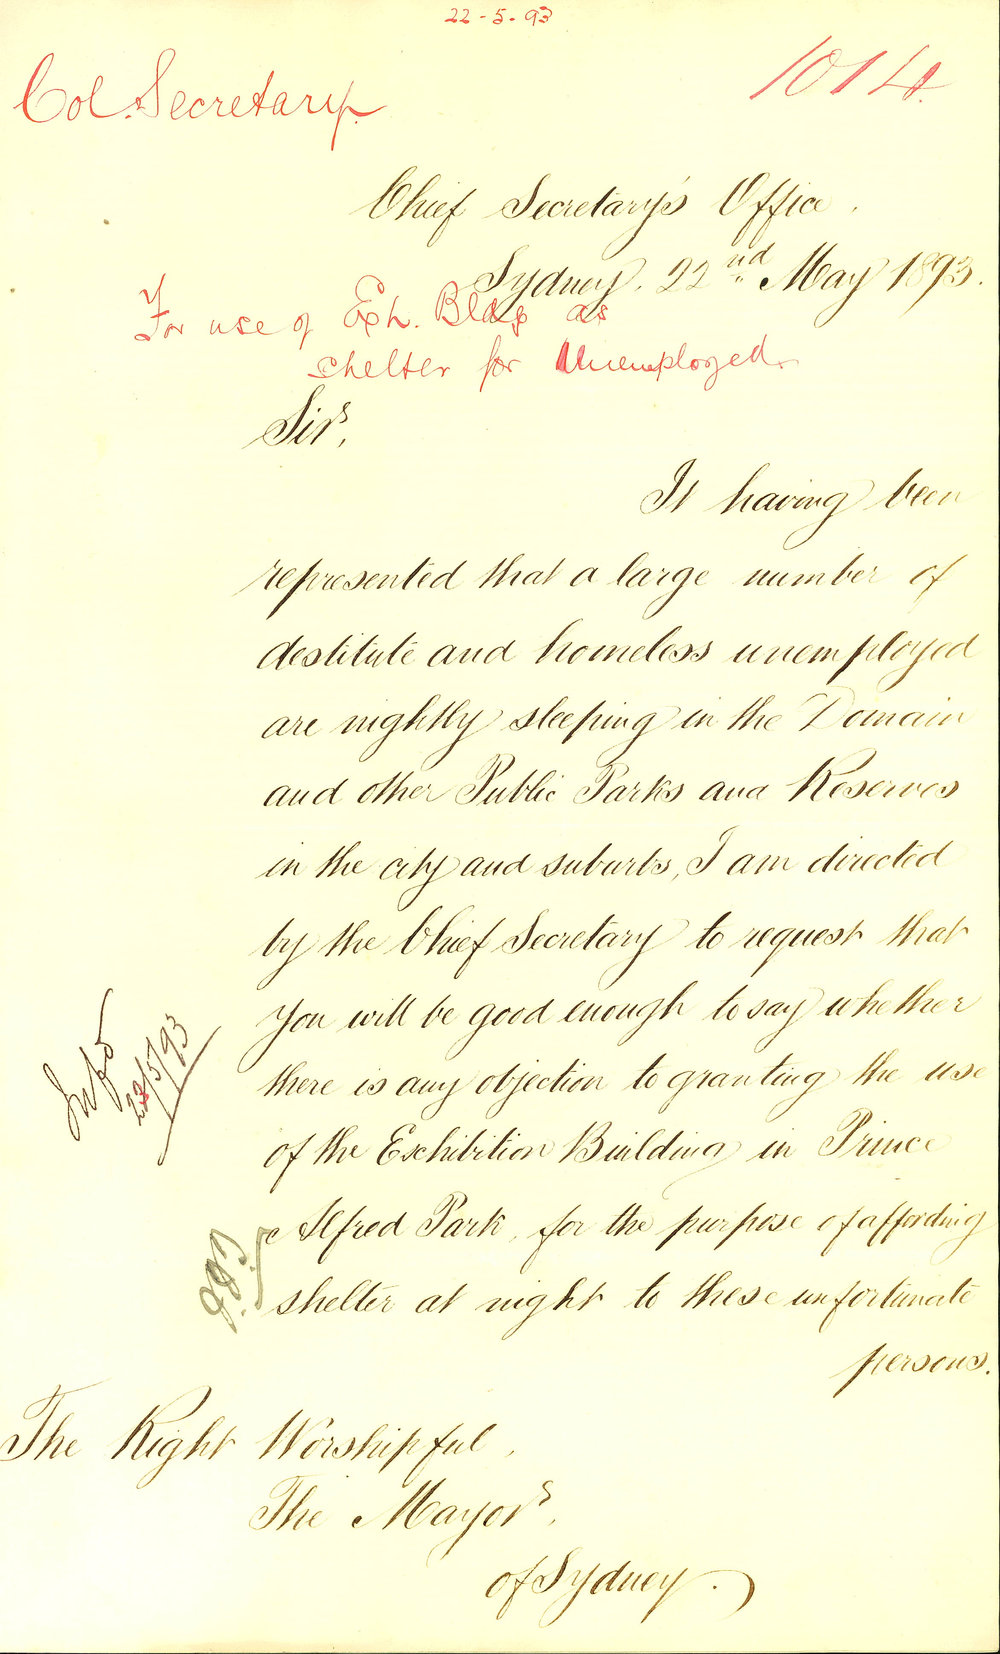 22-5-93
Col. Secretary.
1014.
Chief Secretary's Office.
Sydney, 22nd May 1893.
For use of Exh. Bldg as
shelter for Unemployed.
Sir,
It having been
represented that a large number of
destitute and homeless unemployed
are nightly sleeping in the Domain
and other Public Parks and Reserves
in the city and suburbs, I am directed
by the Chief Secretary to request that
you will be good enough to say whether
there is any objection to granting the use
of the Exhibition Building in Prince
Alfred Park, for the purpose of affording
shelter at night to these unfortunate
persons.
23/5/93
The Right Worshipful,
The Mayor,
of Sydney.